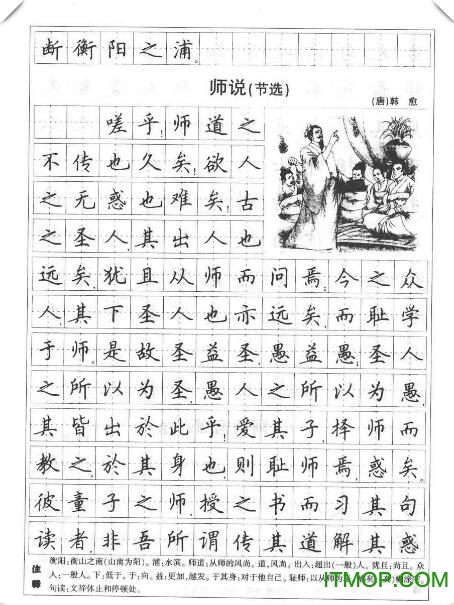 断衡阳之浦。
师说(节选)
(唐)韩 愈
嗟乎!师道之
不传也久矣!欲人
之无惑也难矣!古
之圣人,其出人也
远矣,犹且从师而问焉;今之众
人,其下圣人也亦远矣,而耻学
于师。是故圣益圣,愚益愚。圣人
之所以为圣,愚人之所以为愚,
其皆出於此乎!爱其子,择师而
教之;於其身也,则耻师焉,惑矣。
彼童子之师,授之书而习其句
读者,非吾所谓传其道解其惑
注释
衡阳:衡山之南(山南为阳)。浦:水滨。师道:从师的风尚。道,风尚。出人:超出(一般)人。犹且:尚且。众
人:一般人。下:低于。于:向。益:更加,越发。于其身:对于他自己。耻师:以从师为耻。
句读:文辞休止和停顿处。
IT猫扑网
ITMOP.COM